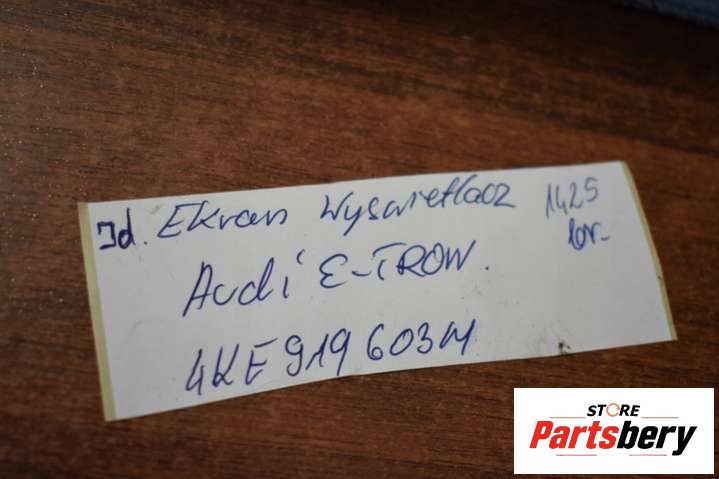 Jd. Ekran Wyswietlacz 1425
Audi E-TROW.
4KE919603M
STORE
Partsbery